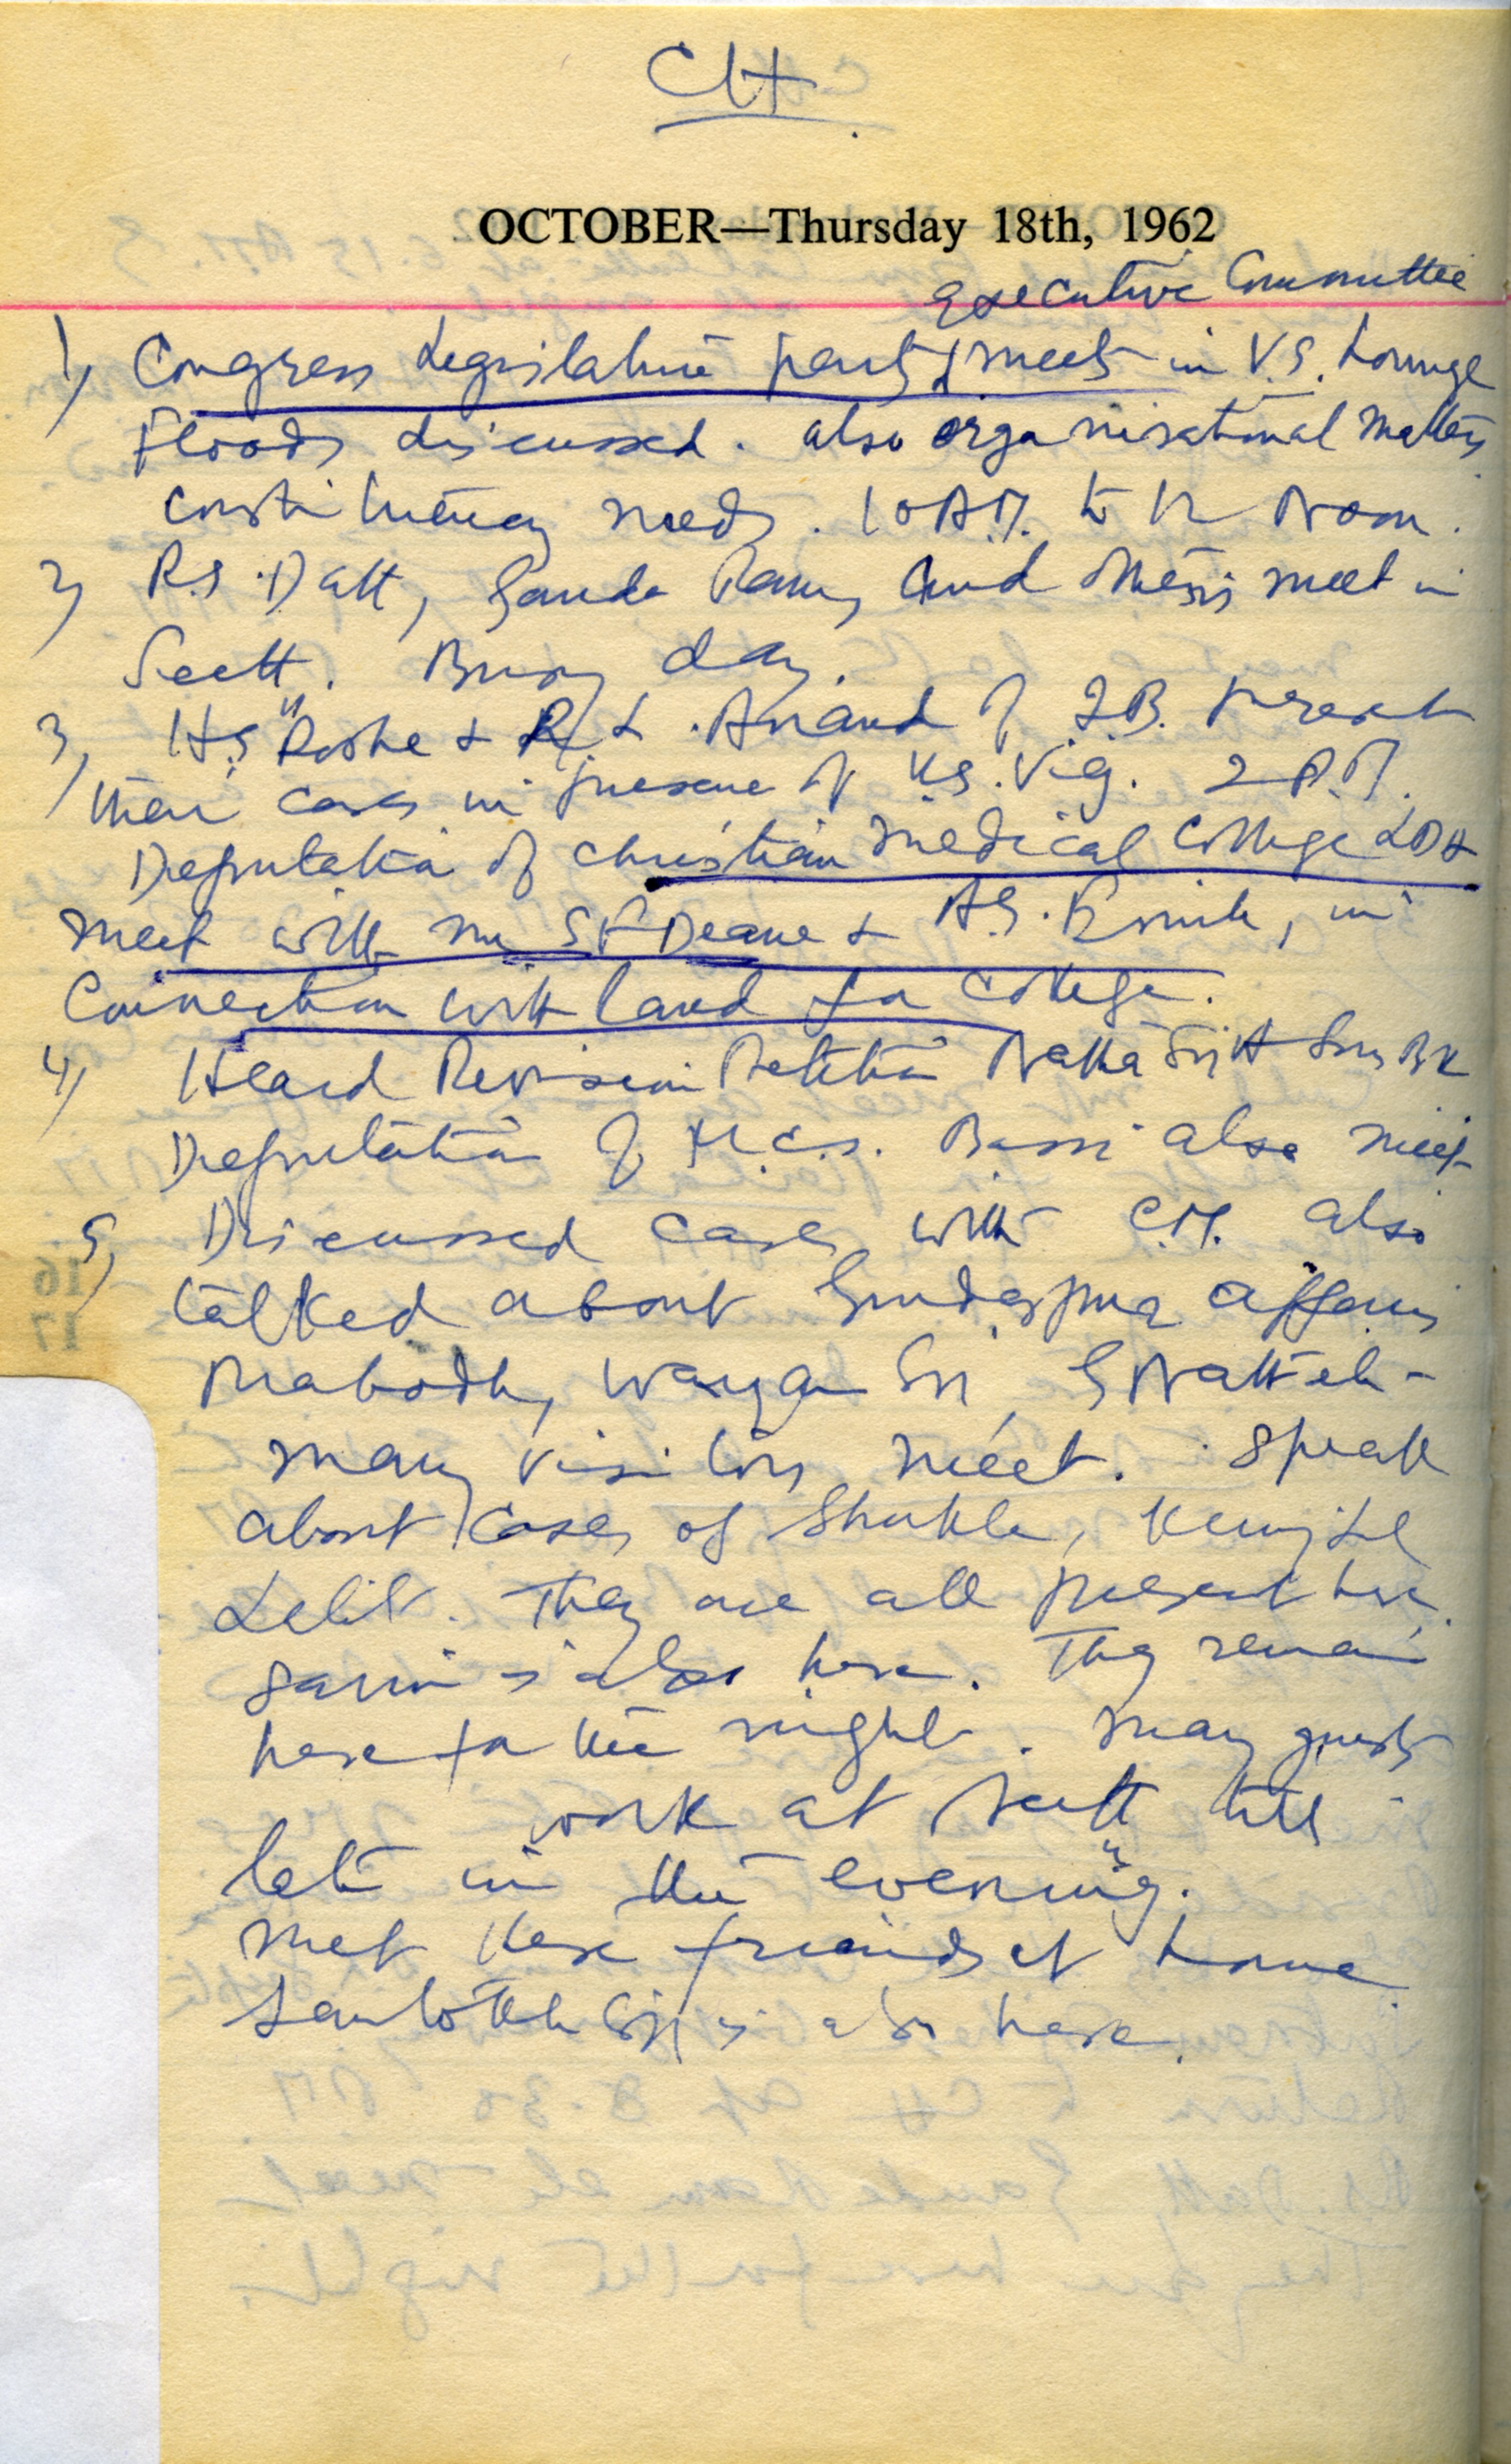 CH
OCTOBER—Thursday 18th, 1962
Executive Committee
1) Congress Legislature party meets in V.S. Lounge
Floods discussed. also organisational matters
constituency needs. 10 A.M. to 12 Noon.
2) R.S. Datt, Ganda Ram, and others meet in
Sectt. Busy day.
3) H.S. & R.L. Anand of I.B. present
their cases in presence of K.S. Vig. 2 P.M.
Deputation of Christian Medical College LDH
meet with me S.F. Deane & A.S. in
Connection with land for College.
4) Heard Revision Petition Natha
Deputation of H.C.S. Bassi also meet
5) Discussed cases with C.M. also
talked about Gurdaspur affairs
Prabodh,
many visitors meet. Speak
about cases of Shukla,
Lalit. They are all present here.
is also here. They remain
here for the night. Many guests
work at Sectt till
late in the evening.
met these friends at home.
is also here.